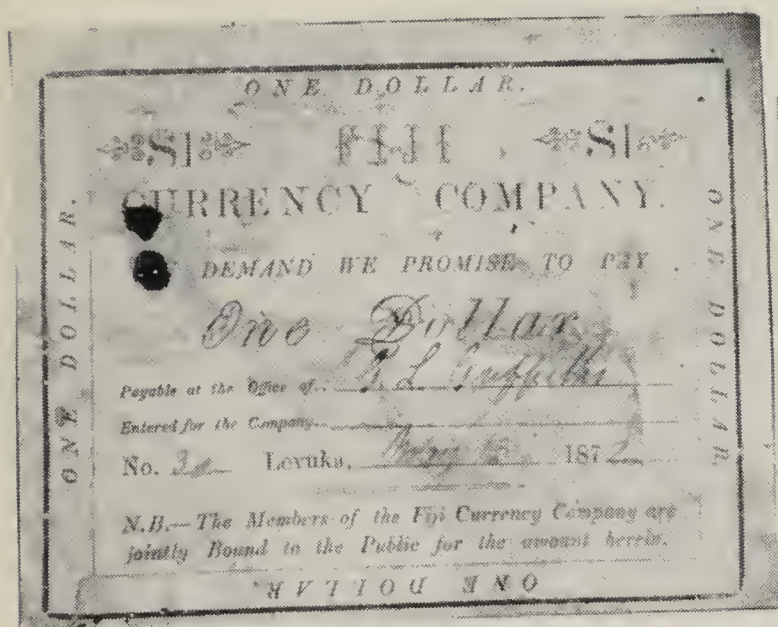 ONE DOLLAR.
$1 FIJI $1
CURRENCY COMPANY.
DEMAND WE PROMISE TO PAY
One Dollar
Payable at the Office of
Entered for the Company
No. Levuka, 1872
N.B.—The Members of the Fiji Currency Company are
jointly Bound to the Public for the amount herein.
ONE DOLLAR.
ONE DOLLAR.
ONE DOLLAR.